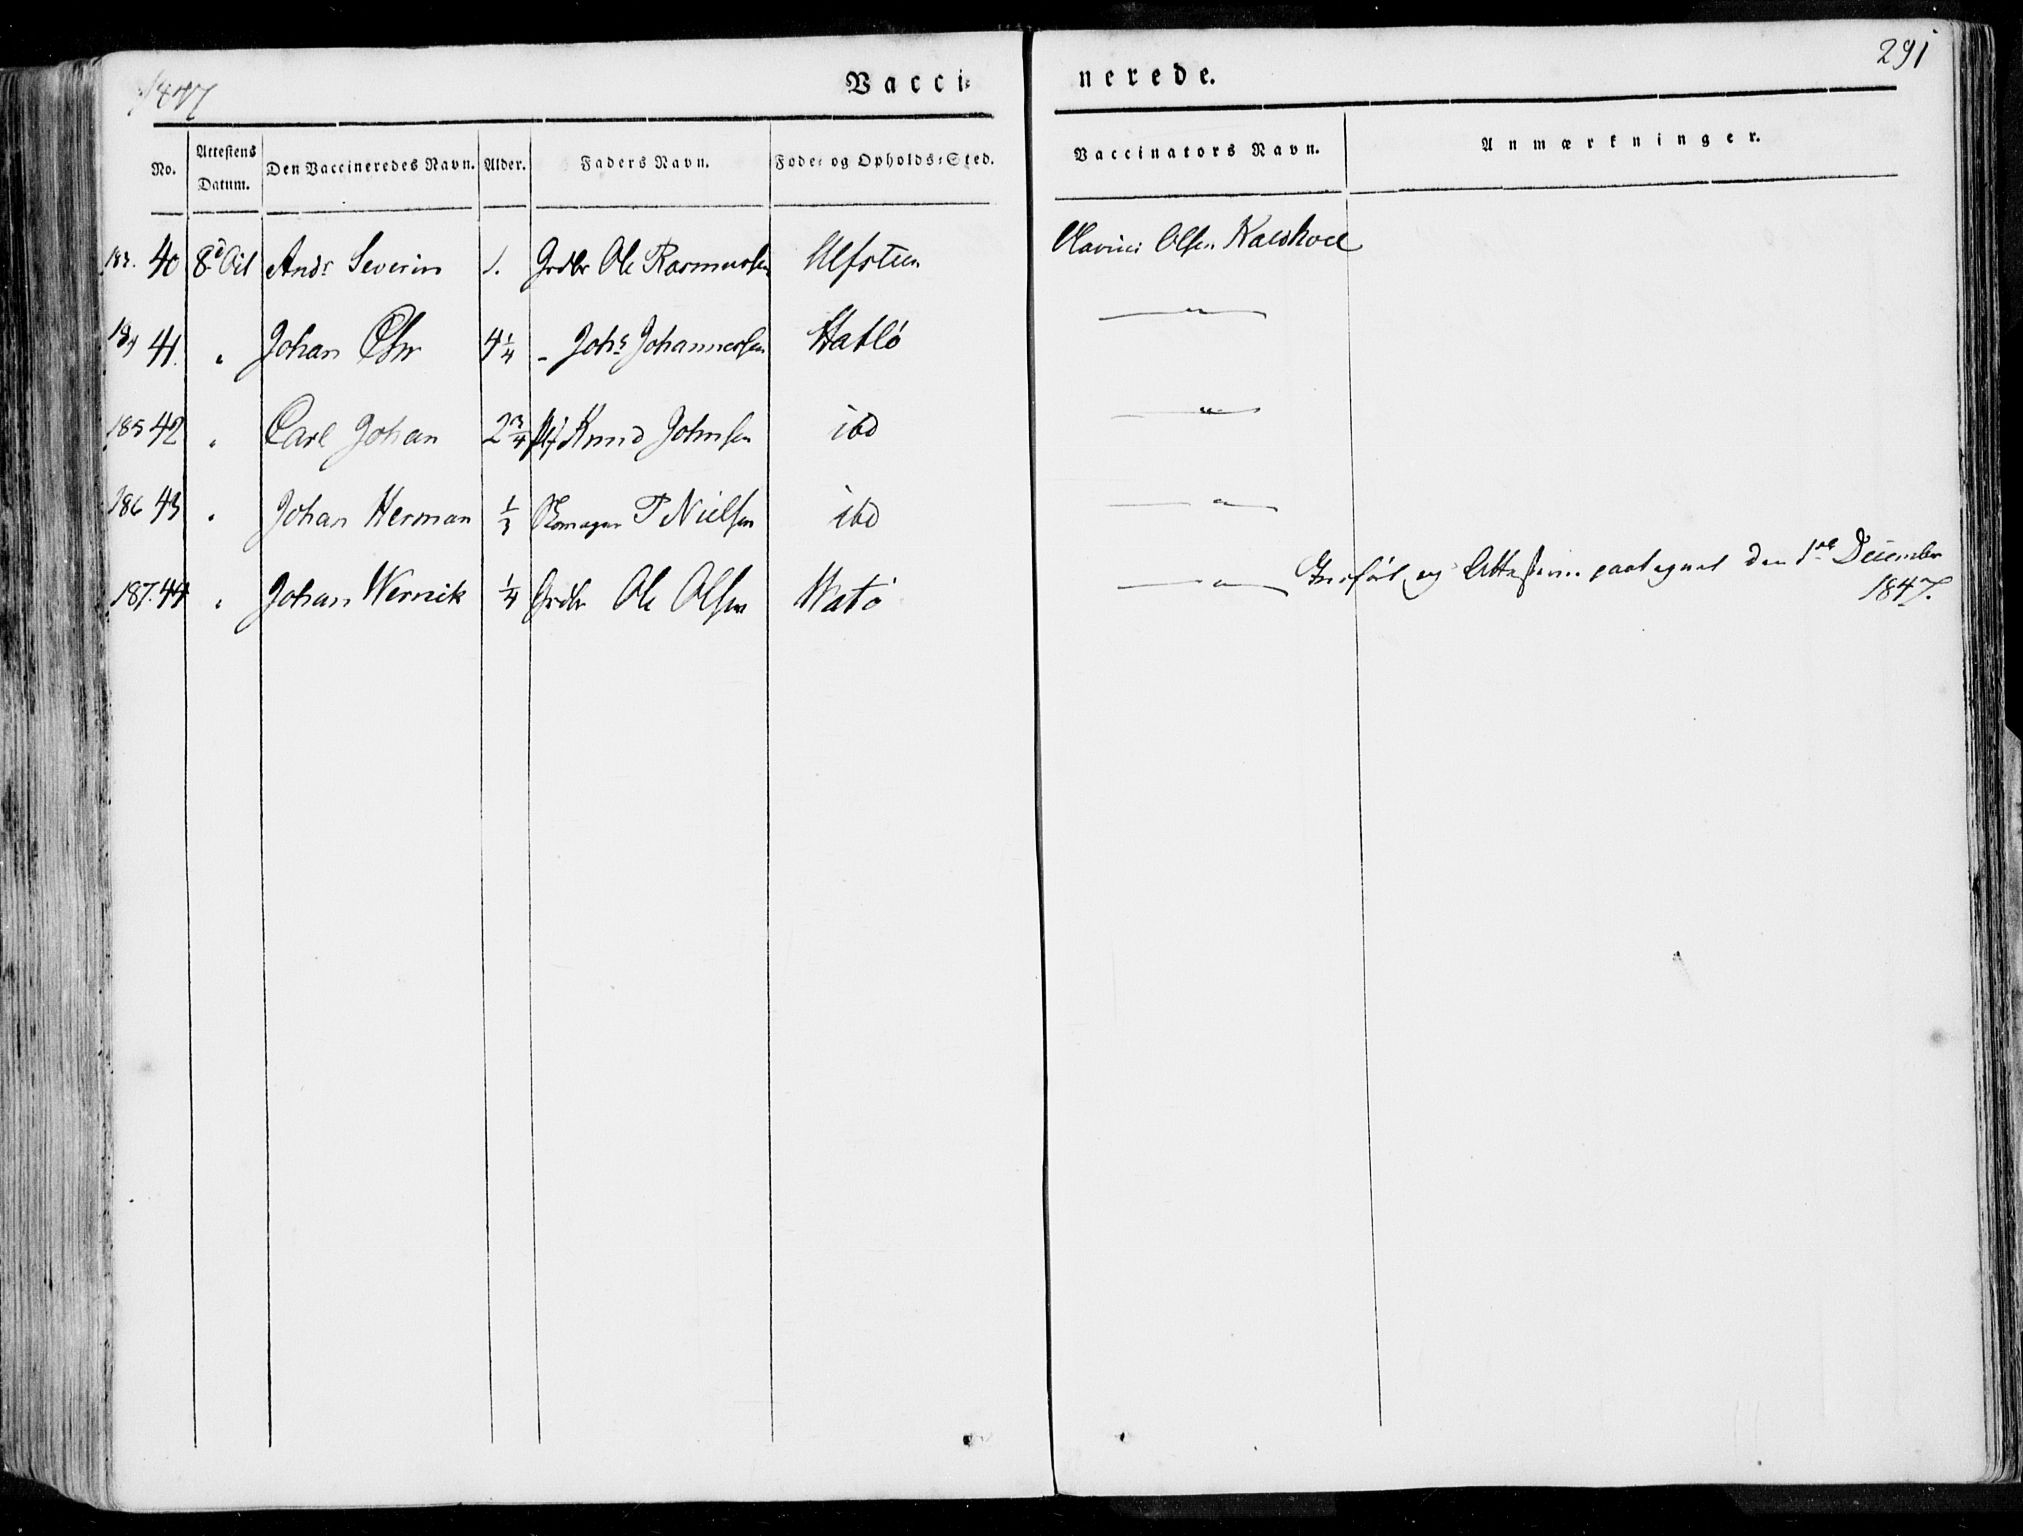 1847
Vacci-
nerede.
291
No. Attestens Datum. Den Vaccineredes Navn. Alder. Faders Navn. Føde- og Opholds-Sted. Vaccinators Navn. Anmærkninger.
183. 40 8d Oct Ands Severin 1. Grdbr Ole Rasmussen Ulfsteen Olavius Olsen
184 41. " Johan Chr 4 1/4 - Johs Johannessen Hatlø — " —
185 42 " Carl Johan 2 3/4 Knud Johnsen ibd — " —
186 43 " Johan Herman 1/3 P Nielsen ibd — " —
187. 44 " Johan Wernik 1/4 Grdbr Ole Olsen Watø — " — Indført og Attesterne paategnet den 1ste December
1847.